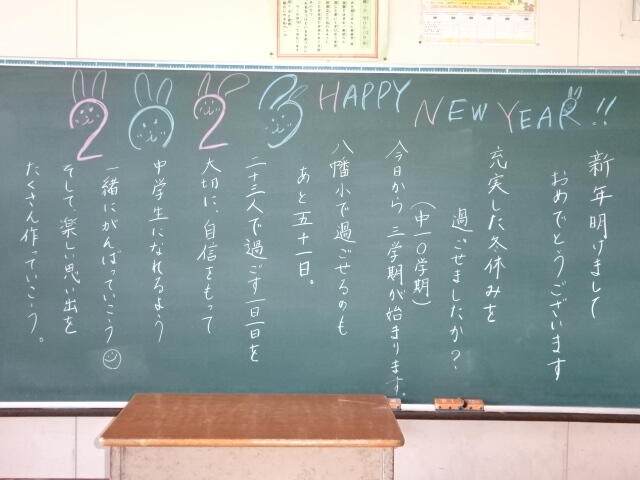 2023 HAPPY NEW YEAR!!
新年明けまして
おめでとうございます
充実した冬休みを
過ごせましたか？
(中一０学期)
今日から三学期が始まります。
八幡小で過ごせるのも
あと五十一日。
二十三人で過ごす一日一日を
大切に、自信をもって
中学生になれるよう
一緒にがんばっていこう
そして楽しい思い出を
たくさん作っていこう。